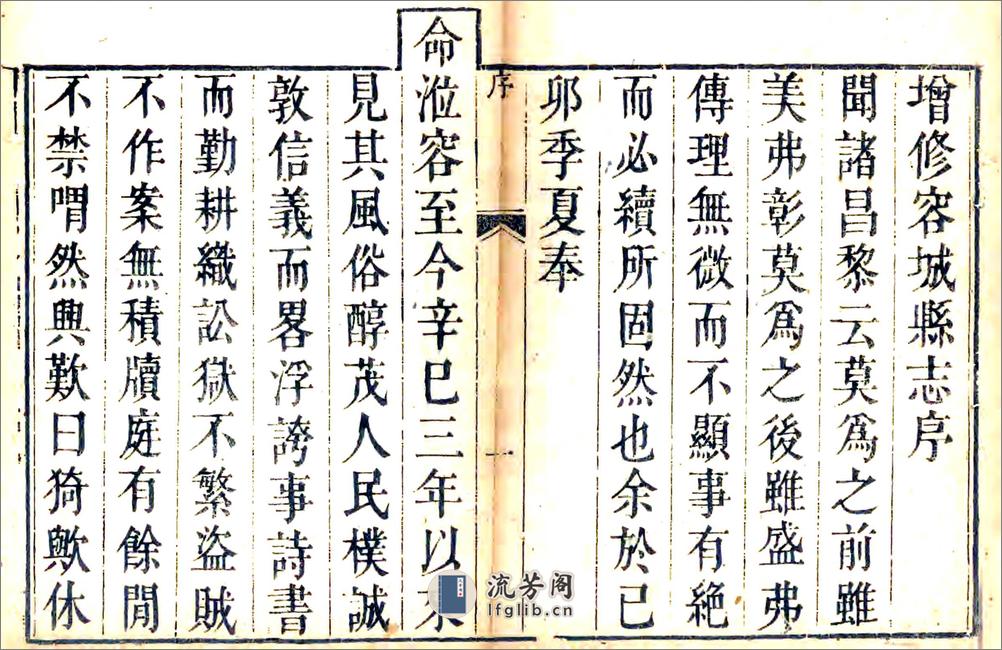 增修容城縣志序
聞諸昌黎云莫爲之前雖
美弗彰莫爲之後雖盛弗
傳理無微而不顯事有絶
而必續所固然也余於已
卯季夏奉
序
一
命涖容至今辛巳三年以來
見其風俗醇茂人民樸誠
敦信義而畧浮誇事詩書
而勤耕織訟獄不繁盜賊
不作案無積牘庭有餘閒
不禁喟然興歎曰猗歟休
流芳阁
lfglib.cn